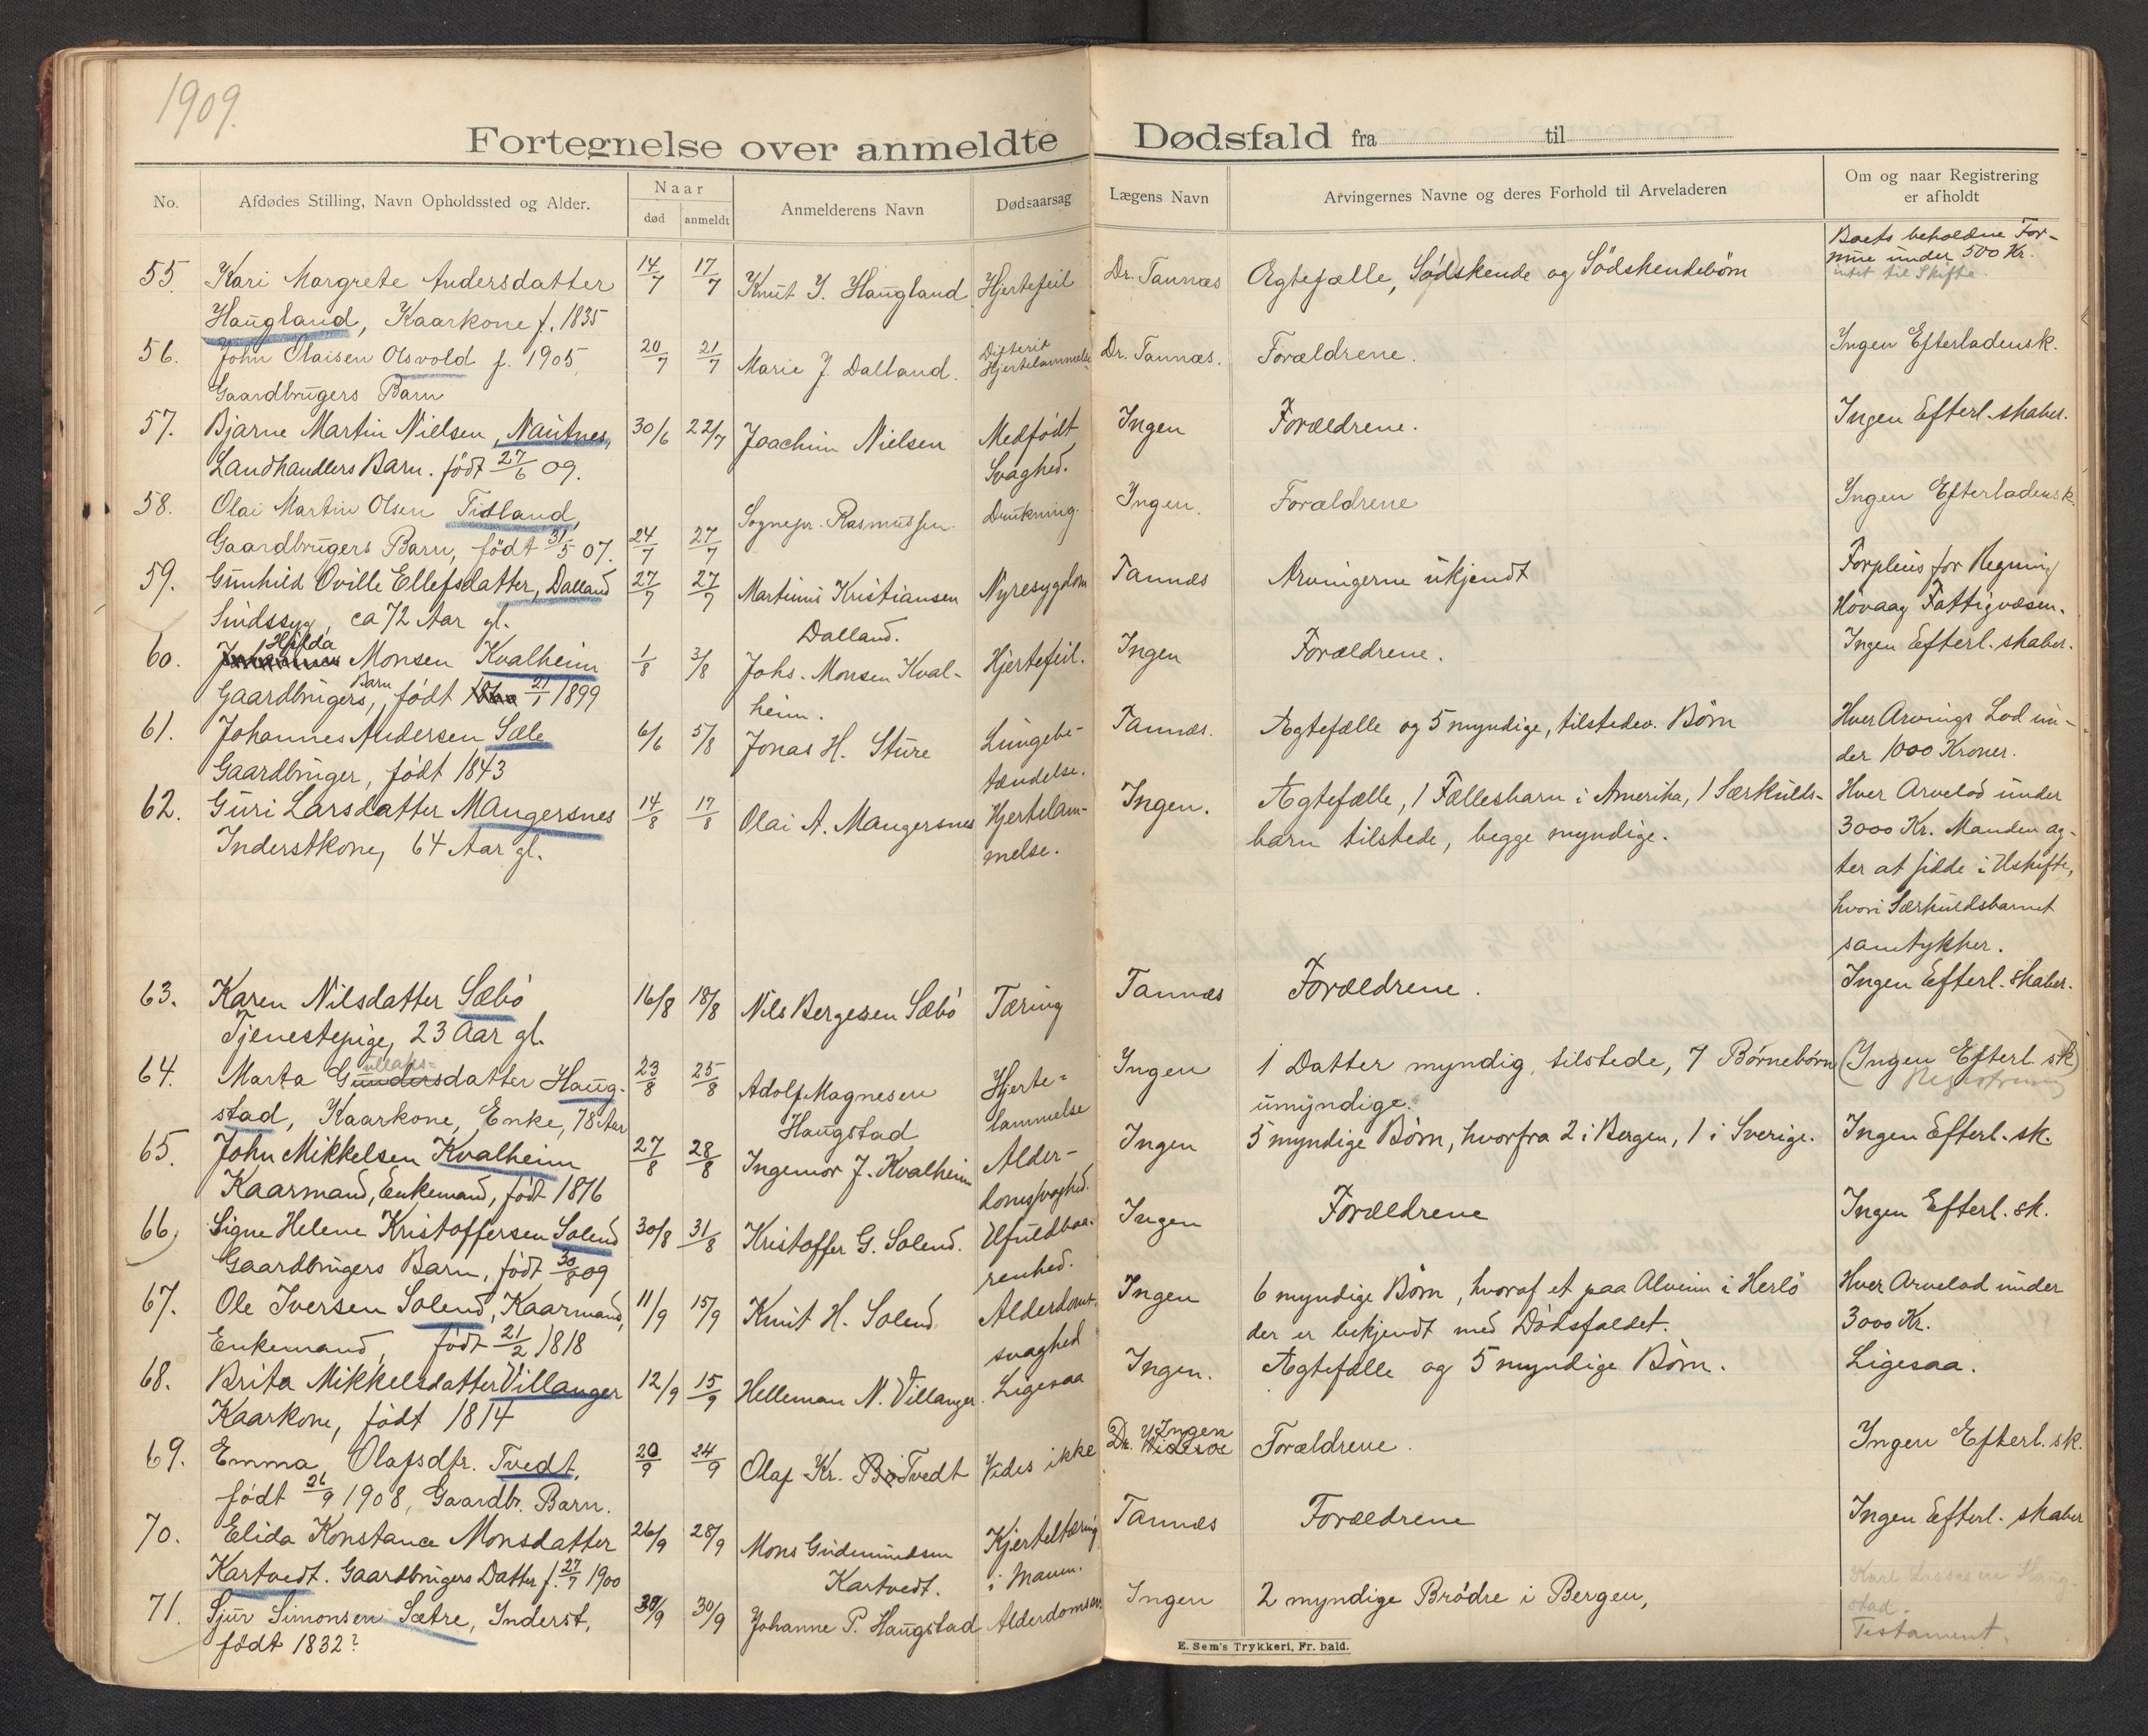 1909.
Fortegnelse over anmeldte Dødsfald fra til
No.
Afdødes Stilling, Navn Opholdssted og Alder.
Naar
død
anmeldt
Anmelderens Navn
Dødsaarsag
Lægens Navn
Arvingernes Navne og deres Forhold til Arveladeren
Om og naar Registrering
er afholdt
55. Kari Margrete Andersdatter 14/7 17/7 Knut J. Haugland Hjertefeil Dr. Tannæs Ægtefælle, Södskende og Södskendebörn Boets beholdne For-
mue under 500 Kr.
intet til Skifte.
Haugland, Kaarkone f. 1835
56. John Olaisen Olsvold f. 1905, 20/7 21/7 Marie J. Dalland. Difterit Dr. Tannæs. Forældrene. Ingen Efterladensk.
Hjertelammelse
Gaardbrugers Barn
57. Bjarne Martin Nielsen, Nautnes, 30/6 22/7 Joachim Nielsen Medfødt Ingen Forældrene. Ingen Efterl.skaber.
Landhandlers Barn. født 27/6 09. Svaghed.
58. Olai Martin Olsen Tidland, Sognepr. Rasmussen. Drukning. Ingen. Forældrene Ingen Efterladensk.
Gaardbrugers Barn, född 31/5 07. 24/7 27/7
59. Gunhild Oville Ellefsdatter, Dalland 27/7 27/7 Martinus Kristiansen Nyresygdom Tannæs Arvingerne ukjendt Forpleies for Regning
Sindssyg, ca 72 Aar gl. Dalland. Høvaag Fattigvæsen.
60. Hilda Monsen Kvalheim 1/8 3/8 Johs. Monsen Kval- Hjertefeil. Ingen Forældrene. Ingen Efterl.skaber.
Gaardbrugers Barn, født 21/1 1899 heim.
61. Johannes Andersen Sæle 6/6 5/8 Jonas H. Sture Lungebe- Tannæs. Ægtefælle og 5 myndige, tilstedev. Børn Hver Arvings Lod un-
Gaardbruger, født 1843 tændelse. der 1000 Kroner.
62. Guri Larsdatter Mangersnes 14/8 17/8 Olai A. Mangersnes Hjertelam- Ingen. Ægtefælle, 1 Fællesbarn i Amerika, 1 Særkulds- Hver Arvelod under
Inderstkone, 64 Aar gl. melse. barn tilstede, begge myndige. 3000 Kr. Manden ag-
ter at sidde i Uskifte,
hvori Særkuldsbarnet
samtykker.
63. Karen Nilsdatter Sæbø 16/8 18/8 Nils Bergesen Sæbø Tæring Tannæs Forældrene. Ingen Efterl.skaber.
Tjenestepige, 23 Aar gl.
64. Marta Gundersdatter Haug- 23/8 25/8 Adolf Magnesen Hjerte- Ingen 1 Datter myndig, tilstede, 7 Børnebørn (Ingen Efterl. sk)
Registrering
stad, Kaarkone, Enke, 78 Aar Haugstad lammelse umyndige.
65. John Mikkelsen Kvalheim 27/8 28/8 Ingemor J. Kvalheim Alder- Ingen 5 myndige Børn, hvorfra 2 i Bergen, 1 i Sverige. Ingen Efterl.sk.
Kaarmand, Enkemand, født 1816 domssvaghed.
66. Signe Helene Kristoffersen Solend 30/8 31/8 Kristoffer G. Solend. Ufuldbaa- Ingen Forældrene Ingen Efterl.sk.
Gaardbrugers Barn, født 30/8 09 renhed.
67. Ole Iversen Solend, Kaarmand, 11/9 15/9 Knut H. Solend. Alderdoms- Ingen 6 myndige Børn, hvoraf et paa Alveim i Herlö Hver Arvelod under
Enkemand, født 21/2 1818 svaghed der er bekjendt med Dødsfaldet. 3000 Kr.
68. Brita Mikkelsdatter Villanger 12/9 15/9 Helleman N. Villanger. Ligesaa Ingen. Ægtefælle og 5 myndige Børn. Ligesaa.
Kaarkone, født 1814
69. Emma Olafsdtr. Tvedt, 20/9 24/9 Olaf Kr. Tvedt Vides ikke Ingen Forældrene. Ingen Efterl.sk.
født 26/9 1908, Gaardbr. Barn.
70. Elida Konstance Monsdatter 26/9 28/9 Mons Gudmundsen Kjerteltæring Tannæs Forældrene Ingen Efterl.skaber
Kartvedt. Gaardbrugers Datter f. 27/7 1900 Kartvedt. i Maven.
71. Sjur Simonsen Sætre, Inderst, 30/9 30/9 Johanne P. Haugstad Alderdomssv. Ingen 2 myndige Brödre i Bergen, Haug-
stad.
født 1832? Testament.
E. Sem's Trykkeri, Fr. hald.